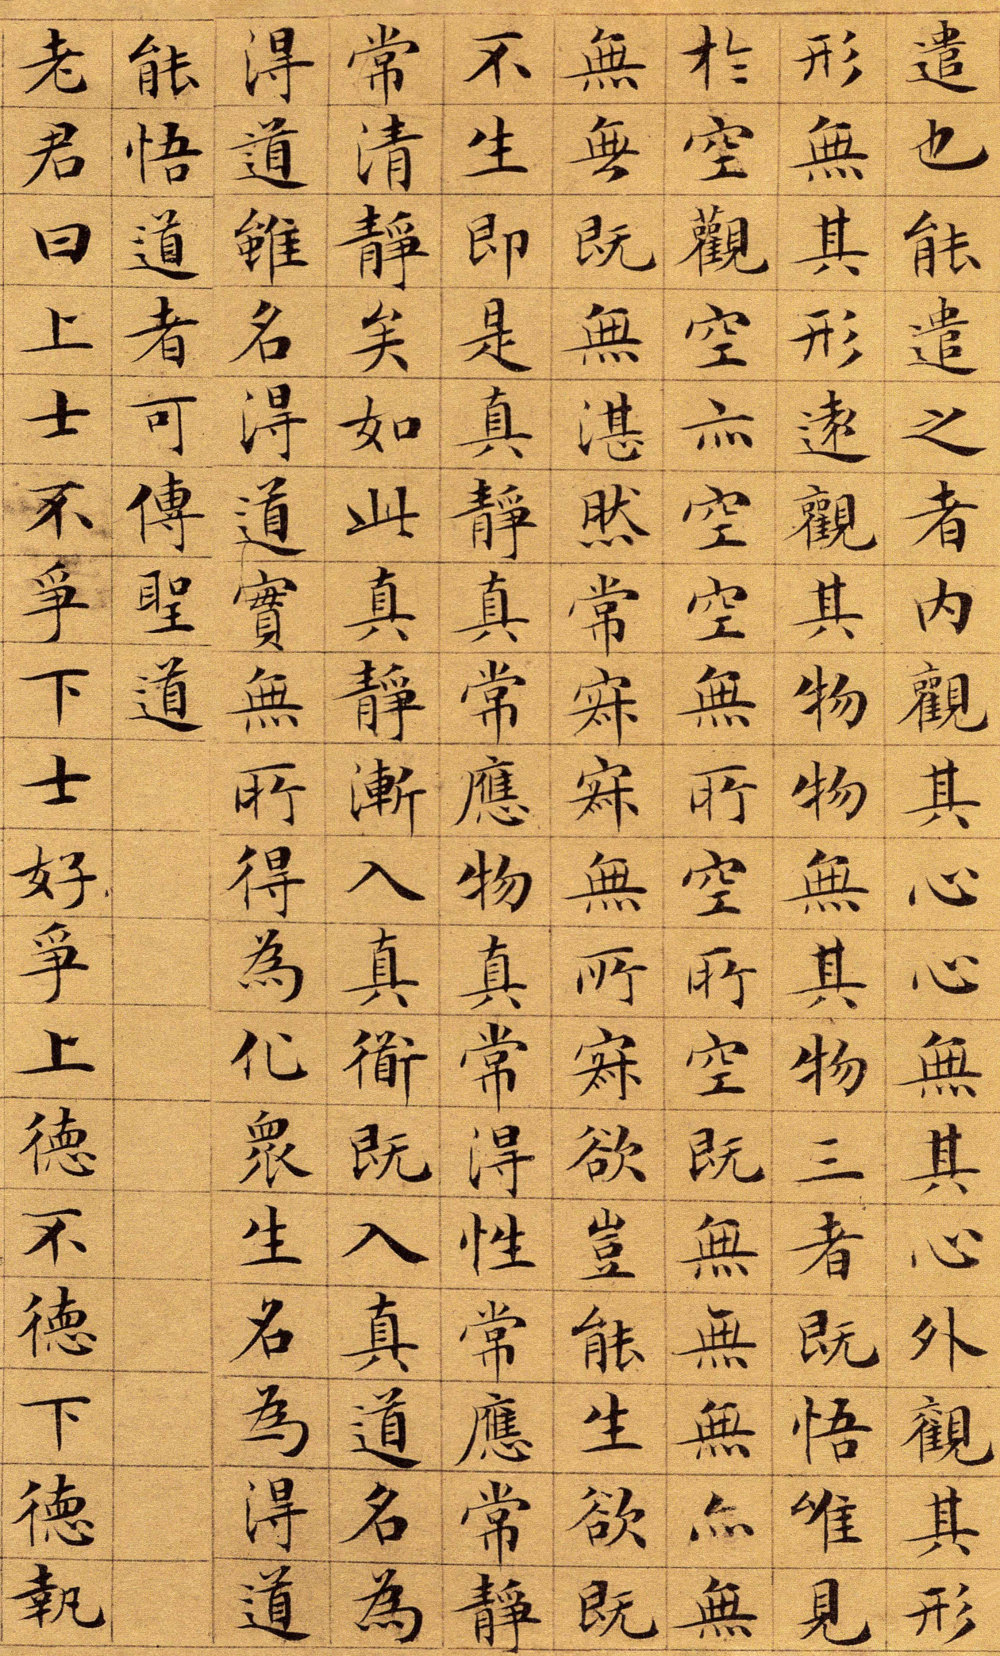 遣也能遣之者内觀其心心無其心外觀其形
形無其形遠觀其物物無其物三者既悟唯見
於空觀空亦空空無所空所空既無無無亦無
無無既無湛然常寂寂無所寂欲豈能生欲既
不生即是真靜真常應物真常得性常應常靜
常清靜矣如此真靜漸入真衜既入真道名為
得道雖名得道實無所得為化眾生名為得道
能悟道者可傳聖道
老君曰上士不爭下士好爭上德不德下德執